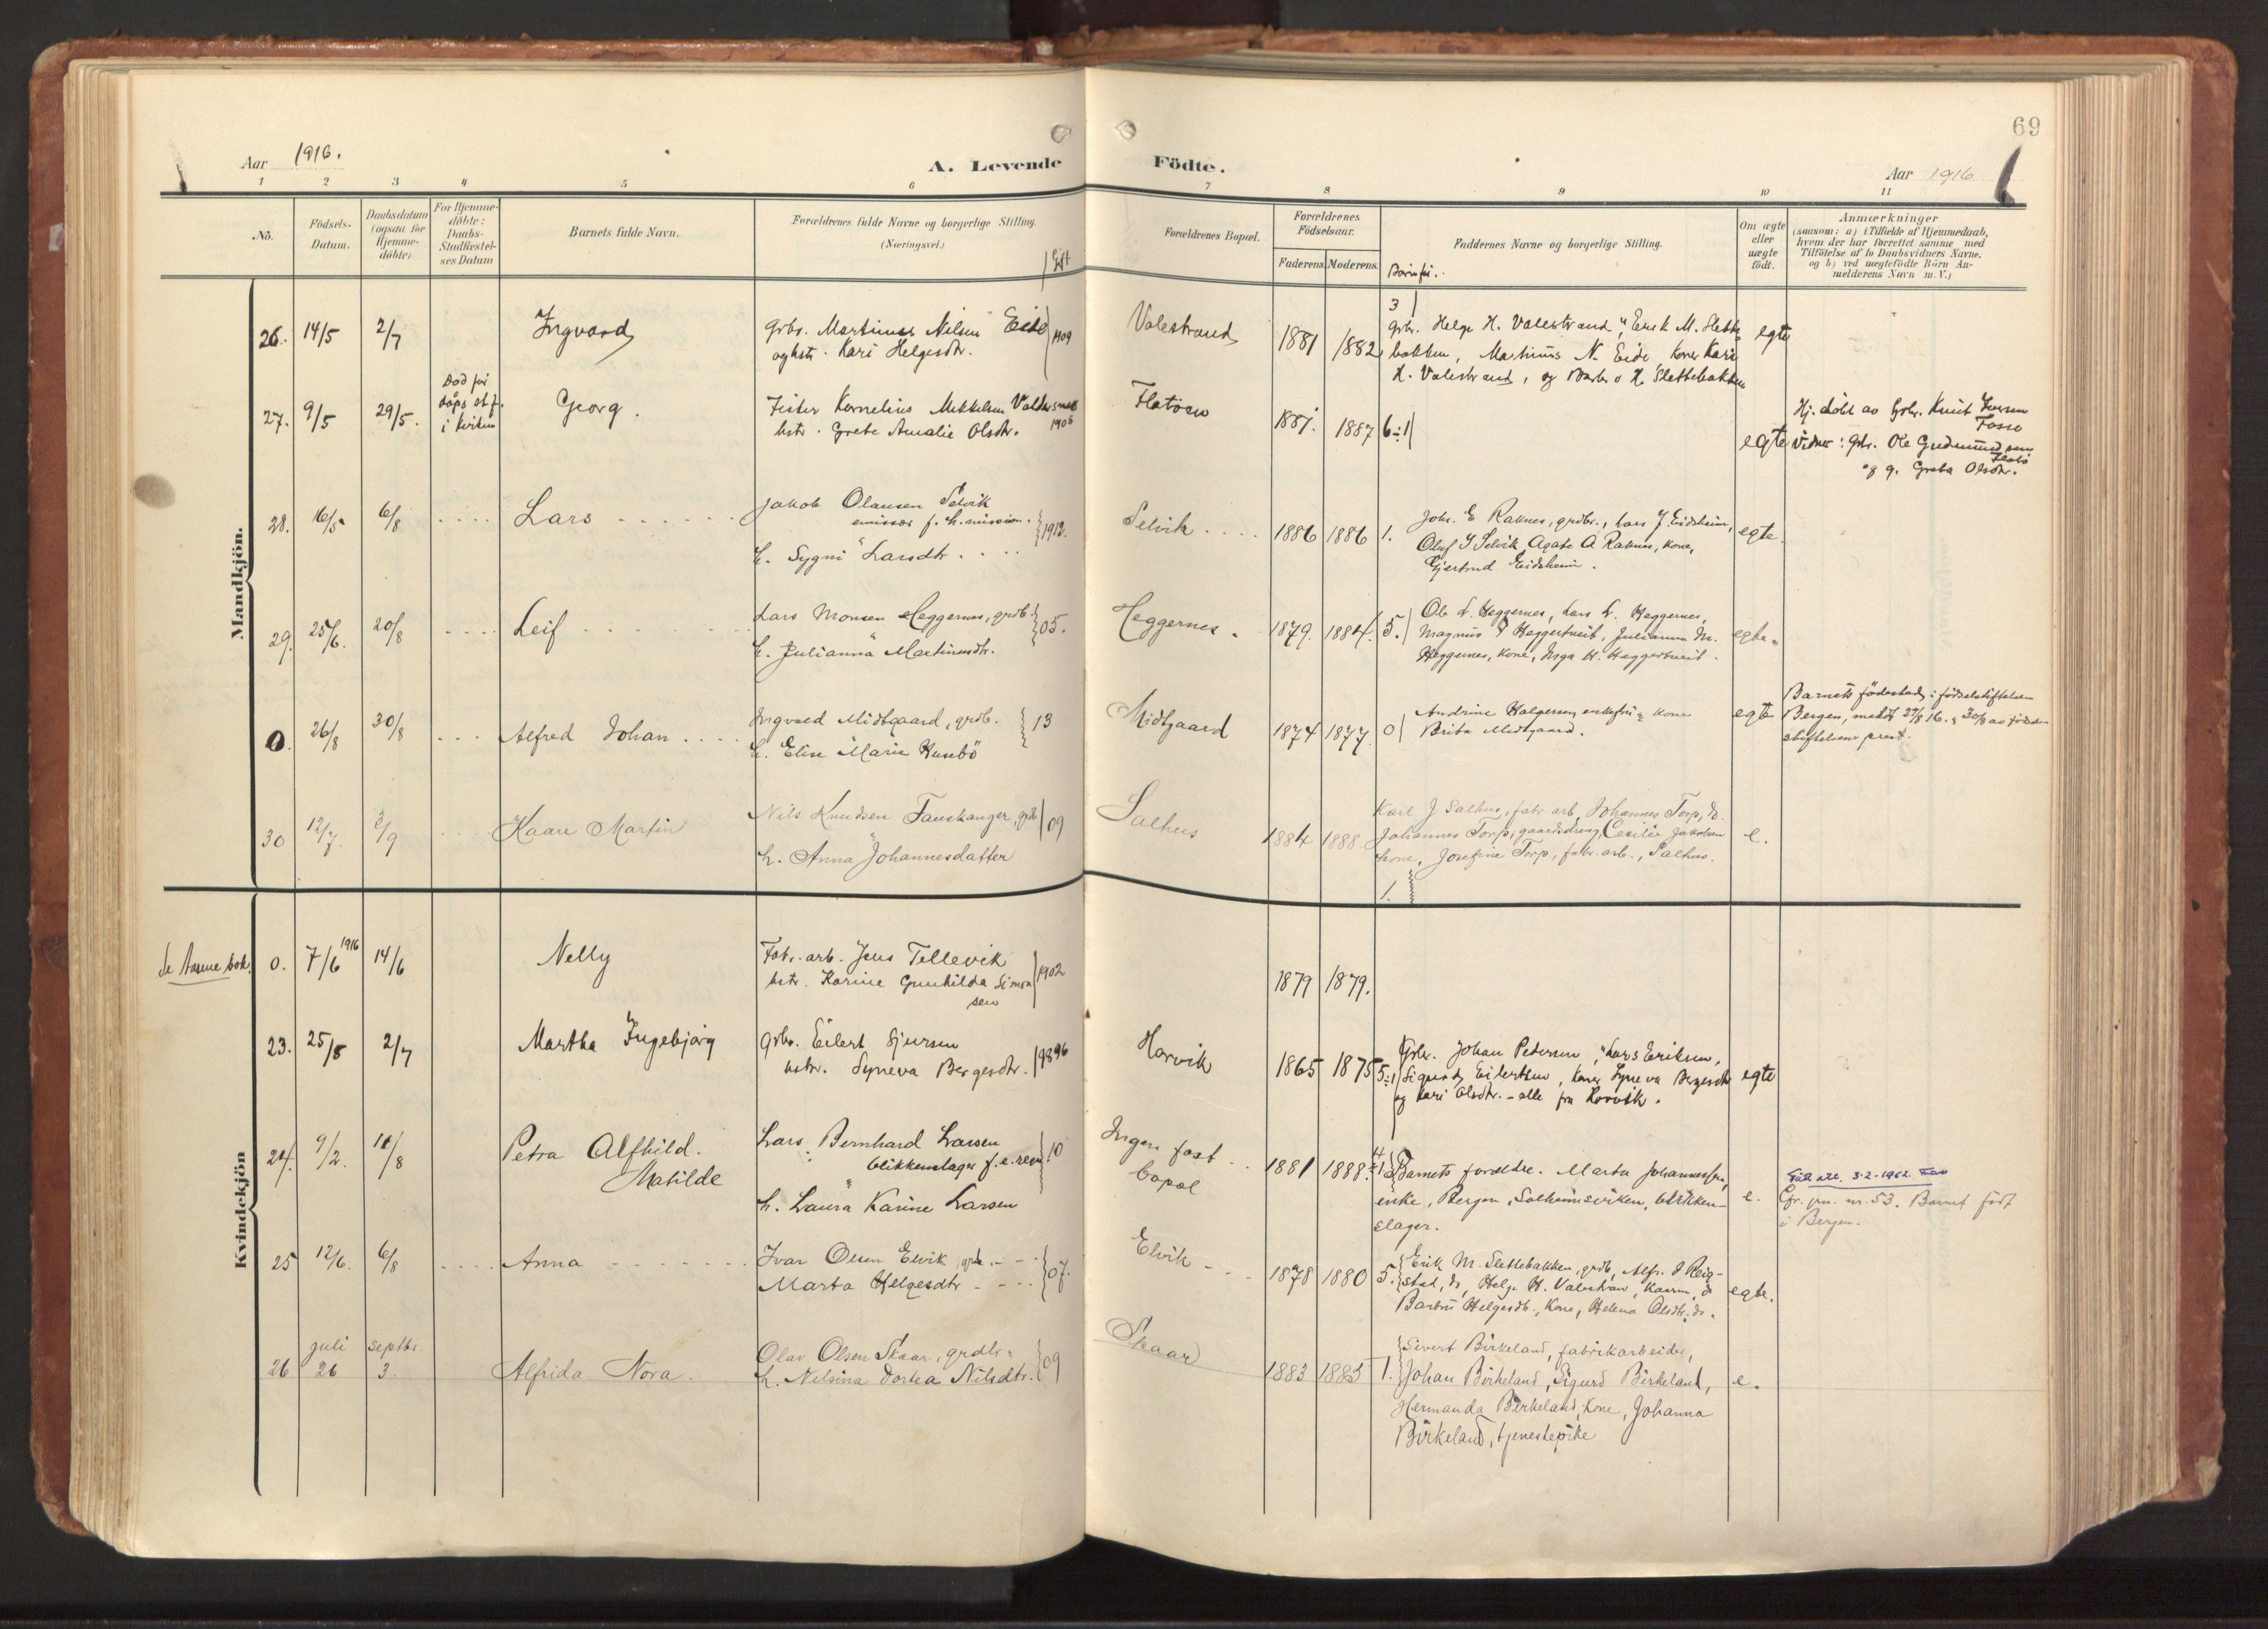 69
Aar 1916.
A. Levende Födte.
Aar 1916.
1 2 3 4 5 6 7 8 9 10 11
No.
Födsels-
Datum.
Daabsdatum
(ogsaa for
Hjemme-
döbte)
For Hjemme-
döbte:
Daabs-
Stadfæstel-
ses Datum
Barnets fulde Navn.
Forældrenes fulde Navne og borgerlige Stilling.
(Næringsvei.)
Forældrenes Bopæl.
Forældrenes
Födselsaar.
Faderens. Moderens.
Faddernes Navne og borgerlige Stilling.
Om ægte
eller
uægte
födt.
Anmærkninger
(saasom: a) i Tilfælde af Hjemmedaab,
hvem der har forrettet samme med
Tilföielse af to Daabsvidners Navne.
og b) ved uægtefödte Börn An-
melderens Navn m. V.)
Mandkjön.
26. 14/5 2/7
Ingvard
Grbr. Martinus Nilsen Eide
og hstr. Kari Helgesdtr.
1909
Valestrand
1881 1882
3
Grbr. Helge H. Valestrand, " Erik M. Slette-
bakken, Martinus N. Eide, Koner Kari
H. Valestrand, og Barbro H. Slettebakken
egte
27. 9/5 29/5.
Död för
döps st.f.
i kirken
Georg.
Fisker Kornelius Mikkelsen Valdersnes
hstr. Grete Amalie Olsdtr.
1908
Flatöen
1887. 1887
6÷1
egte
Hj. döbt av Grbr. Knut Iversen
Fosse
vidner: Grbr. Ole Gudmundsen
Flatö
og g. Greta Olsdtr.
28. 16/5 6/8
Lars
Jakob Olausen Selvik
emissær f. h.mission.
h. Sygni Larsdtr.
1912.
Selvik
1886 1886 1.
Johs. E Raknes, grdbr., Lars J. Eidsheim,
Oluf J Selvik, Agate A Raknes, kone,
Gjertrud Eidsheim.
egte.
29. 25/6. 20/8
Leif
Lars Monsen Heggernes, grdb.
h. Julianna Martinusdtr.
05.
Heggernes.
1879. 1884. 5.
Ole L. Heggernes, Lars L. Heggernes,
Magnus Heggertveit, Julianna M.
Heggernes, kone, Inga H. Heggertveit.
egte.
0. 26/8 30/8
Alfred Johan
Ingvald Midtgaard, grdb.
h. Elise Marie Husebö
13
Midtgaard
1874 1877. 0
Andrine Halversen, enkefru, kone
Brita Midtgaard.
egte
Barnets födested: i födselsstiftelsen
Bergen, meldt 27/8 16. 30/8 av födsels-
stiftelsens prest.
30 12/7. 3/9
Kaare Martin
Nils Knudsen Fauskanger, grdb
h. Anna Johannesdatter
09
Salhus
1884 1888.
Karl J Salhus, fabr. arb, Johannes Torp, do.
Johannes Torp, gaardsdreng, Cecilie Jakobsen
kone, Josefine Torp, fabr. arb., Salhus.
1.
e.
Kvindekjön
0. 7/6 1916 14/6
Nelly
Fabr. arb. Jens Tellevik
hstr. Karine Gunhilda Simon
sen
1902
1879 1879.
23. 25/5 2/7
Martha Ingebjörg
Grbr. Eilert Sjursen
hstr. Syneva Bergesdtr.
1896
Horvik
1865 1875 5÷1
Grbr. Johan Pedersen, " Lars Eriksen,
Sigurd Eilertsen, koner Syneva Bergesdtr
og Kari Olsdtr. - alle fra Horvik.
egte
24. 9/2. 10/8
Petra Alfhild.
Matilde
Lars Bernhard Larsen
blikkenslager f. e. reis.
h. Laura Karine Larsen
10
Ingen fast
bopæl
1881 1888.
Barnets foreldre. Marta Johannessen,
enke, Bergen, Solheimsviken, blikken-
slager.
e.
3-2-1962.
Cfr. jrn. nr. 53. Barnet födt
i Bergen.
25 12/6. 6/8
Anna
Ivar Olsen Elvik, grdb.
Marta Helgesdtr
07.
Elvik
1878 1880 5.
Erik M. Slettebakken, grdb, Alfr. O Reig-
stad, do, Helge H. Valestran, Kaarin, do
Barbru Helgesdtr., Kone, Helena Olsdtr. do.
egte.
juli septbr.
26 26 3.
Alfrida Nora.
Olav Olsen Skaar, grdbr.
h. Nilsina Dortea Nilsdtr.
09
Skaar
1883 1885 1.
Sivert Birkeland, fabrikarbeider,
Johan Birkeland, Sigurd Birkeland,
Hermanda Birkeland, Kone, Johanna
Birkeland, tjenestepike
e.